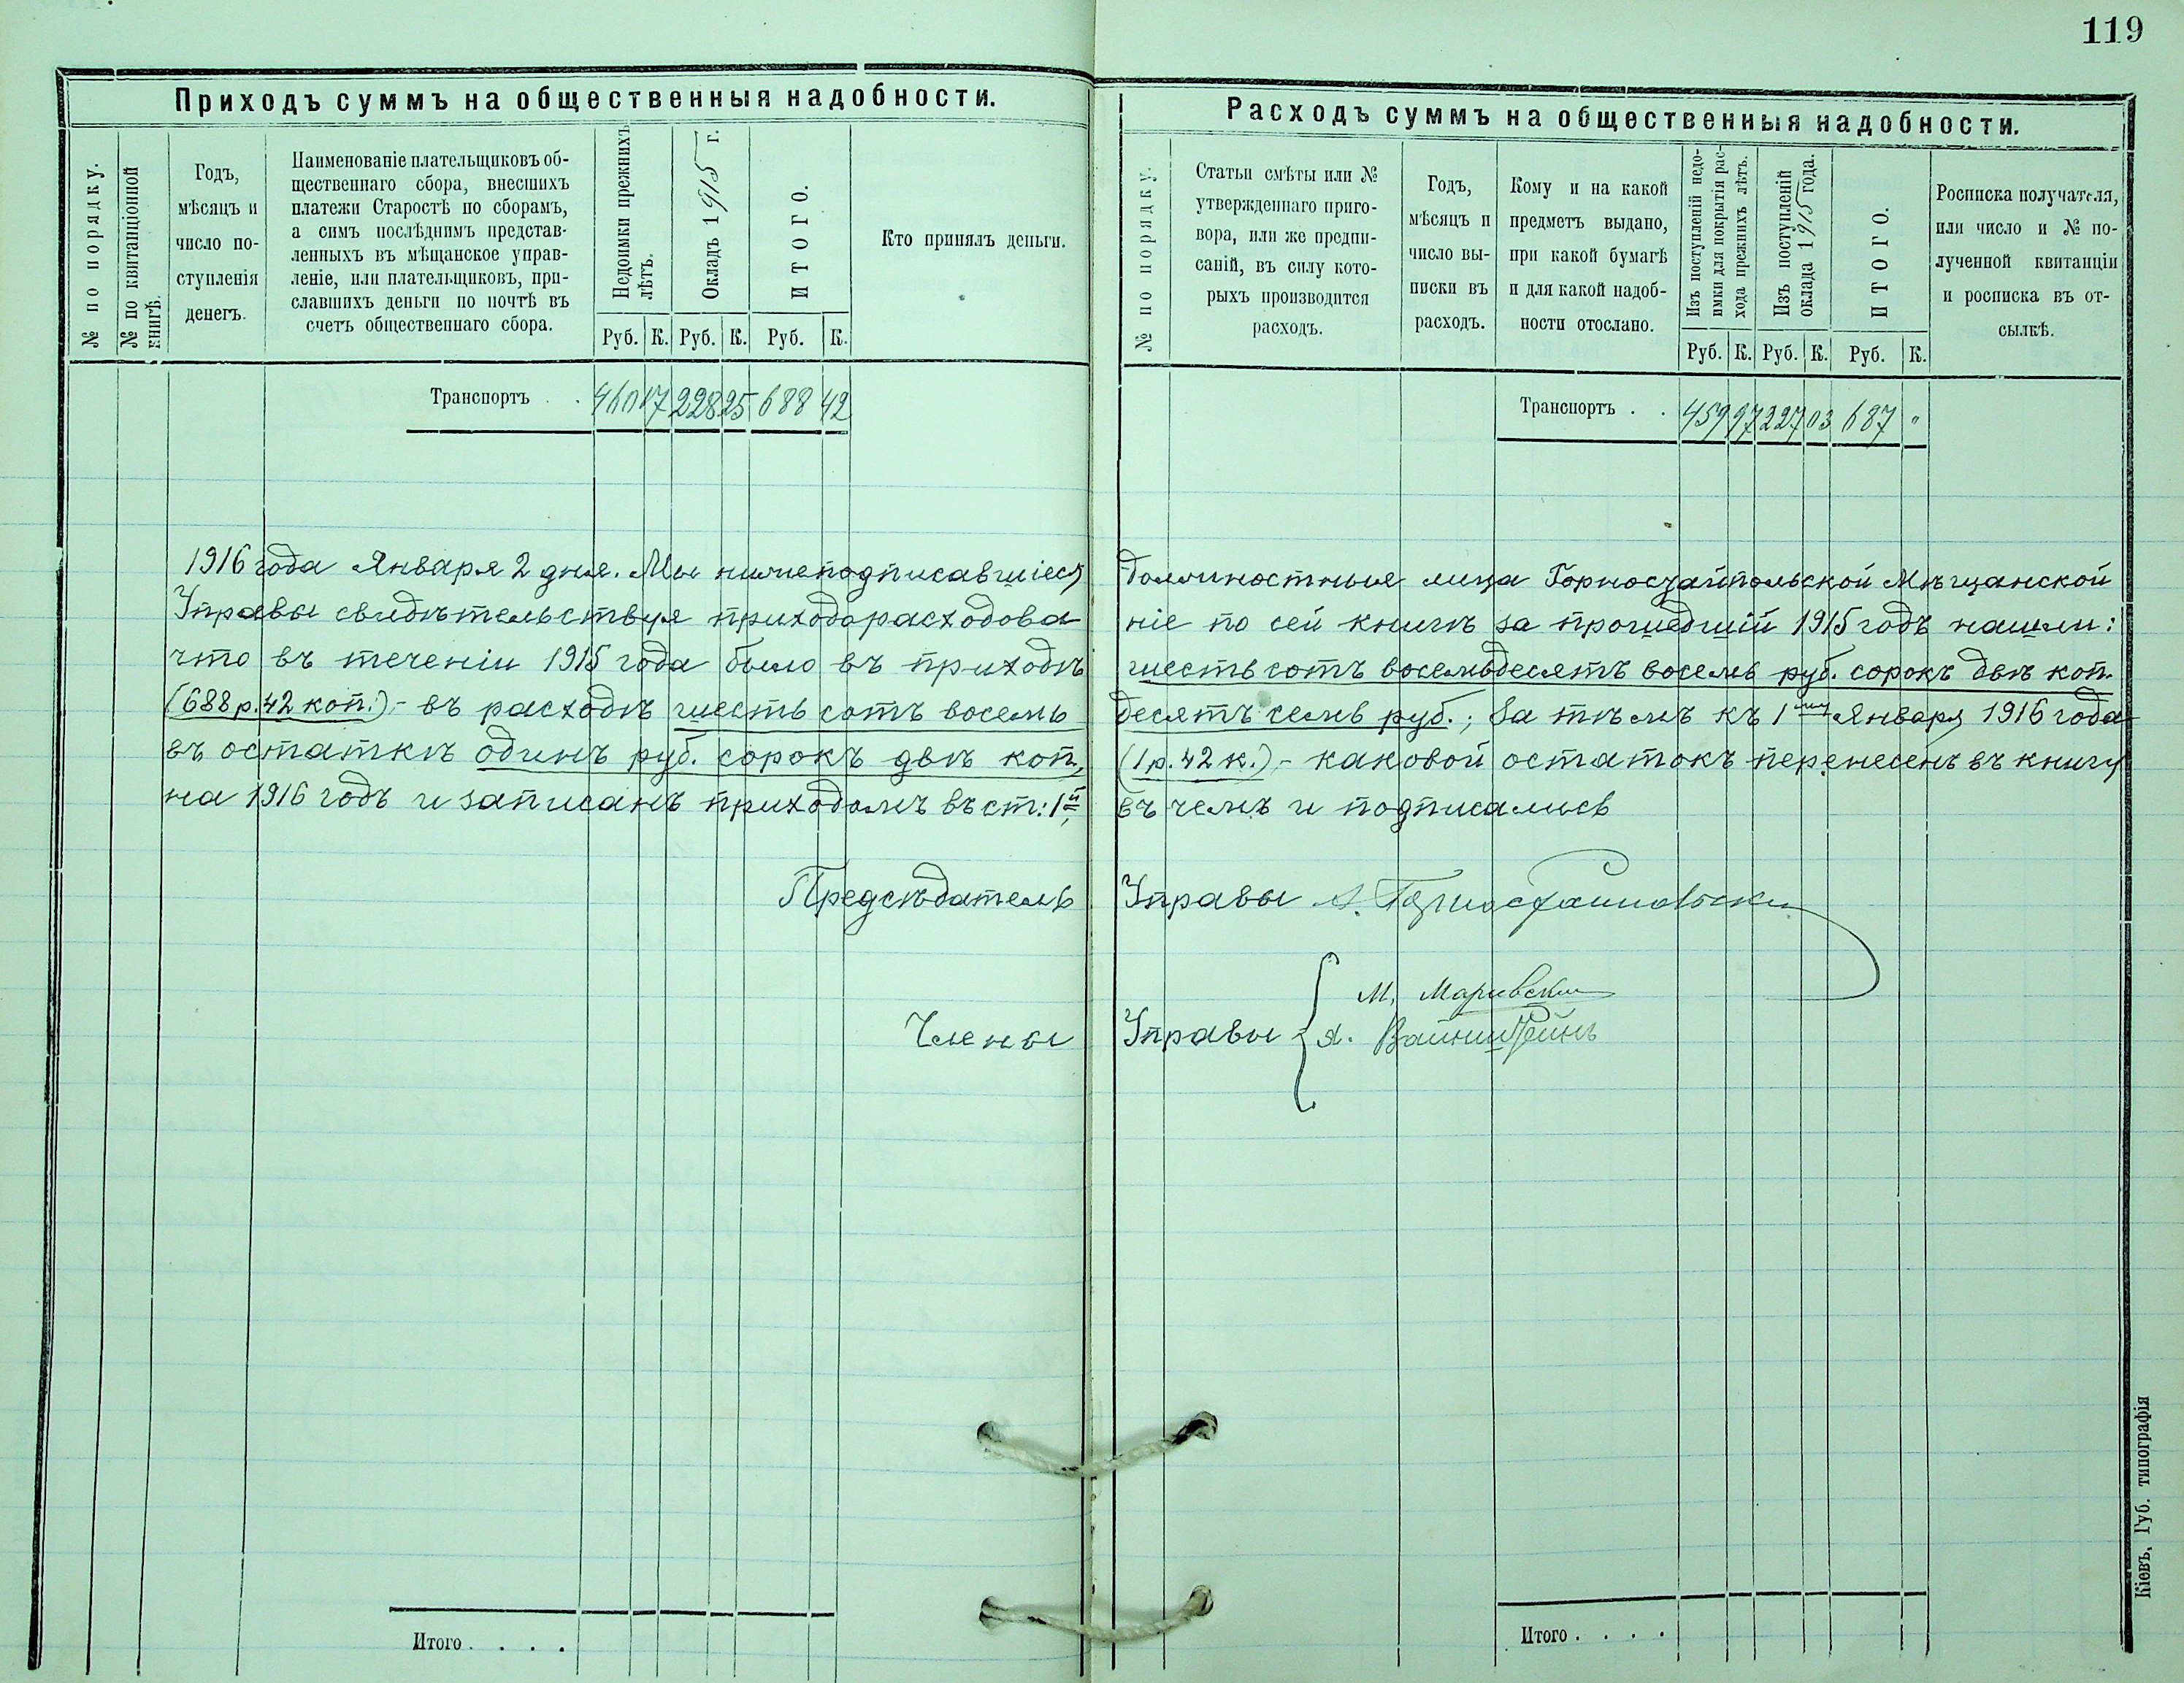 119
Приходъ суммъ на общественныя надобности.
№ по порядку.
№ по квитанціонной
книгѣ.
Годъ,
мѣсяцъ и
число по-
ступленія
денегъ.
Наименованіе плательщиковъ об-
щественнаго сбора, внесшихъ
платежи Старостѣ по сборамъ,
а симъ послѣднимъ представ-
ленныхъ въ мѣщанское управ-
леніе, или плательщиковъ, при-
славшихъ деньги по почтѣ въ
счетъ общественнаго сбора.
Недоимки прежнихъ
лѣтъ.
Окладъ 1915 г.
ИТОГО.
Кто принялъ деньги.
Руб. К. Руб. К. Руб. К.
Транспортъ . . 460 17 228 25 688 42
Расходъ суммъ на общественныя надобности.
№ по порядку.
Статьи смѣты или №
утвержденнаго приго-
вора, или же предпи-
саній, въ силу кото-
рыхъ производится
расходъ.
Годъ,
мѣсяцъ и
число вы-
писки въ
расходъ.
Кому и на какой
предметъ выдано,
при какой бумагѣ
и для какой надоб-
ности отослано.
Изъ поступленій недо-
имки для покрытія рас-
хода прежнихъ лѣтъ.
Изъ поступленій
оклада 1915 года.
ИТОГО.
Росписка получателя,
или число и № по-
лученной квитанціи
и росписка въ от-
сылкѣ.
Руб. К. Руб. К. Руб. К.
Транспортъ . . 459 97 227 03 687 "
1916 года Января 2 дня. Мы нижеподписавшіеся должностныя лица Горностайпольской Мѣщанской
Управы свидѣтельствуя приходорасходова ніе по сей книгѣ за прошедшій 1915 годъ нашли:
что въ теченіи 1915 года было въ приходѣ шесть сотъ восемьдесятъ восемь руб. сорокъ двѣ коп.
(688 р. 42 коп.) - въ расходѣ шесть сотъ восемь десятъ семь руб.; За тѣмъ къ 1му Января 1916 года
въ остаткѣ одинъ руб. сорокъ двѣ коп. (1 р. 42 к.) - каковой остатокъ перенесенъ въ книгу
на 1916 годъ и записанъ приходомъ въ ст: 1й, въ чемъ и подписались
Предсѣдатель Управы
М. Маривски
Члены Управы
Я. Вайнштейнъ
Итого . . . .
Итого . . . .
Кіевъ, Губ. типографія